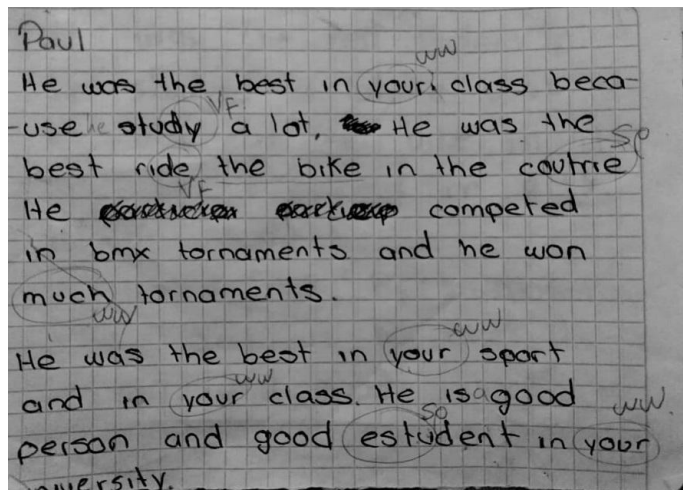 Paul
ww
He was the best in your class beca-
VF
-use he study a lot, He was the
SP
best ride the bike in the coutrie
VF
He competed
in bmx tornaments and he won
much tornaments.
ww
ww
He was the best in your sport
ww
and in your class. He is a good
SP
ww.
person and good estudent in your
university.